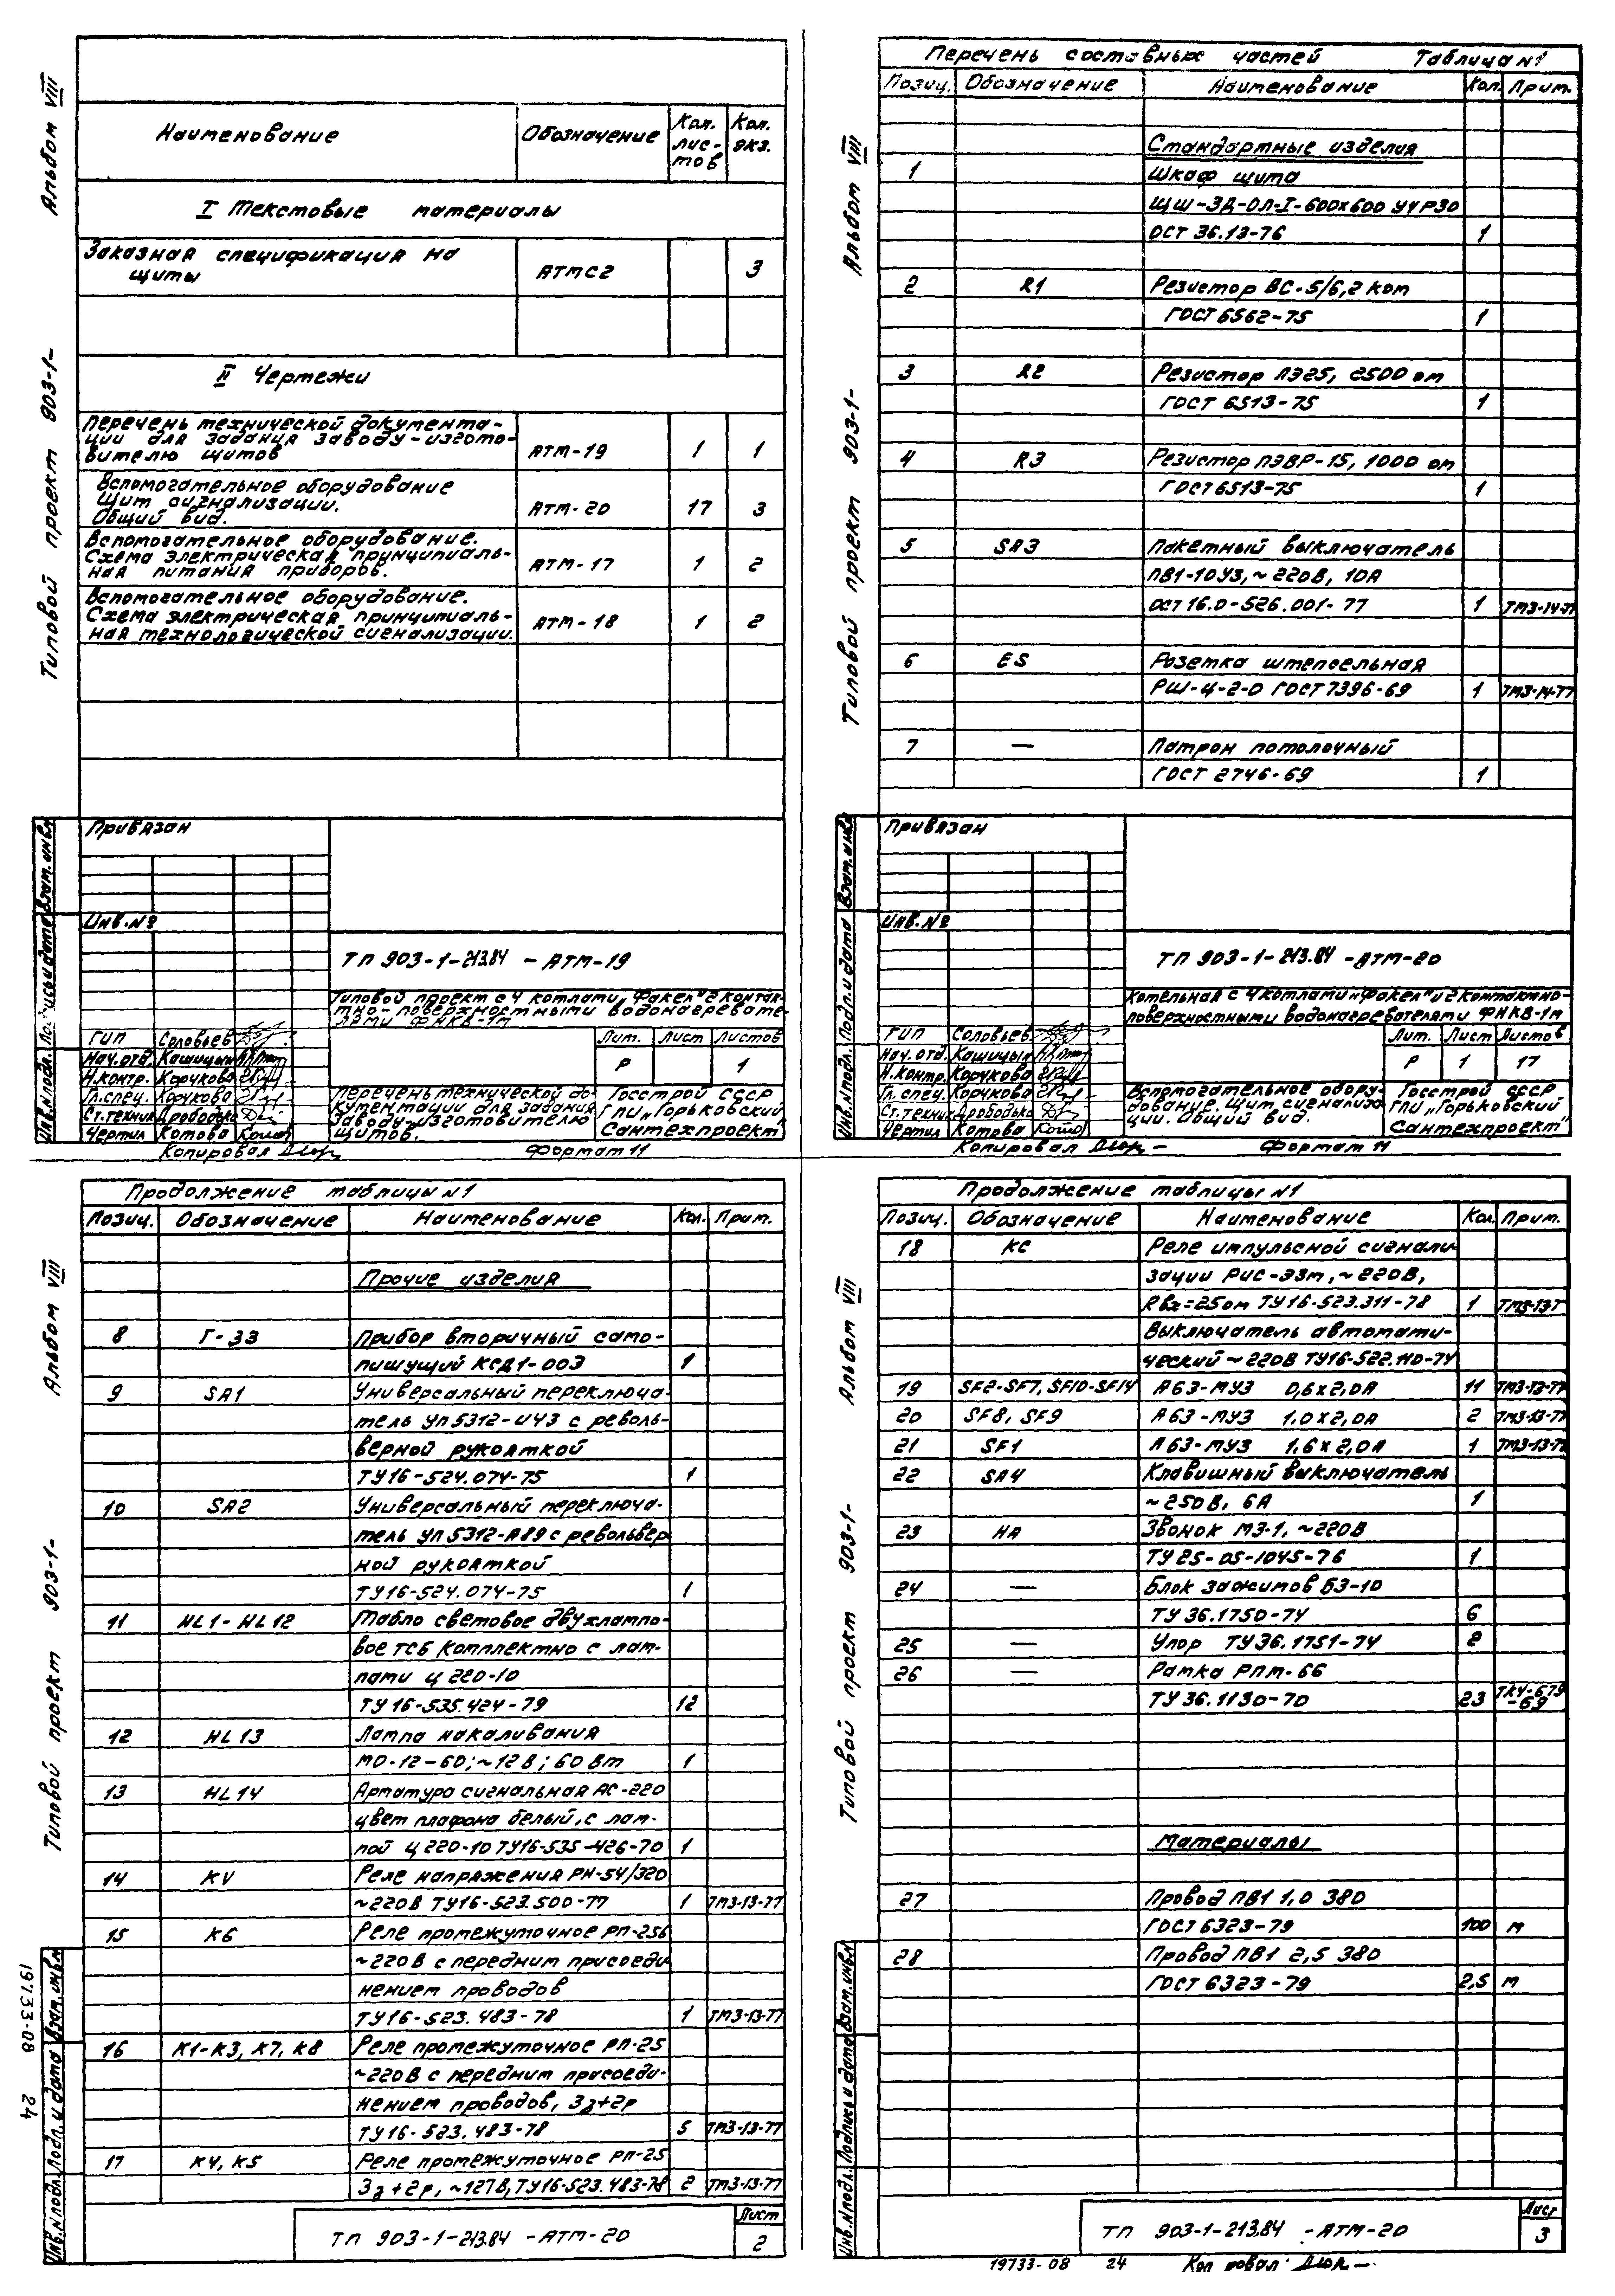 Альбом VIII
Типовой проект 903-1-
Наименование Обозначение Кол. лис-тов Кол. экз.
I Текстовые материалы
Заказная спецификация на
щиты АТМС2 3
II Чертежи
Перечень технической документа-
ции для задания заводу-изгото-
вителю щитов АТМ-19 1 1
Вспомогательное оборудование
Щит сигнализации.
Общий вид. АТМ-20 17 3
Вспомогательное оборудование.
Схема электрическая принципиаль-
ная питания приборов. АТМ-17 1 2
Вспомогательное оборудование.
Схема электрическая принципиаль-
ная технологической сигнализации. АТМ-18 1 2
Привязан
Инв.№
ТП 903-1-213.84 - АТМ-19
Типовой проект с 4 котлами „Факел" 2 контак-
тно-поверхностными водонагревате-
лями ФНКВ-1м
ГИП Соловьев
Лит. Лист Листов
Нач.отд. Кашицын
Р 1
Н.контр. Корчкова
Гл.спец. Корчкова
Ст.техник Дрободько
Чертил Котова
Перечень технической до-
кументации для задания
заводу-изготовителю
щитов.
Госстрой СССР
ГПИ „Горьковский
Сантехпроект"
Инв.№подл. Подпись и дата Взам.инв.№
Копировал Формат 11
Альбом VIII
Типовой проект 903-1-
Перечень составных частей Таблица №1
Позиц. Обозначение Наименование Кол. Прим.
Стандартные изделия
1 Шкаф щита
ЩШ-ЗД-ОЛ-I-600х600 УЧР30
ОСТ 36.13-76 1
2 R1 Резистор ВС-5/6,2 ком
ГОСТ 6562-75 1
3 R2 Резистор ПЭ25, 2500 ом
ГОСТ 6513-75 1
4 R3 Резистор ПЭВР-15, 1000 ом
ГОСТ 6513-75 1
5 SA3 Пакетный выключатель
ПВ1-10У3, ~ 220В, 10А
ОСТ 16.0-526.001-77 1 ТМ3-14-77
6 ES Розетка штепсельная
РШ-Ц-2-0 ГОСТ 7396-69 1 ТМ3-14-77
7 — Патрон потолочный
ГОСТ 2746-69 1
Привязан
Инв.№
ТП 903-1-213.84 -АТМ-20
Котельная с 4 котлами „Факел" и 2 контактно-
поверхностными водонагревателями ФНКВ-1м
ГИП Соловьев
Лит. Лист Листов
Нач.отд. Кашицын
Р 1 17
Н.контр. Корчкова
Гл.спец. Корчкова
Ст.техник Дрободько
Чертил Котова
Вспомогательное обору-
дование. Щит сигнализа-
ции. Общий вид.
Госстрой СССР
ГПИ „Горьковский
Сантехпроект"
Инв.№подл. Подп. и дата Взам.инв.№
Копировал Формат 11
Альбом VIII
Типовой проект 903-1-
Продолжение таблицы №1
Позиц. Обозначение Наименование Кол. Прим.
Прочие изделия
8 Г-33 Прибор вторичный само-
пишущий КСД1-003 1
9 SA1 Универсальный переключа-
тель УП5312-У43 с револь-
верной рукояткой
ТУ16-524.074-75 1
10 SA2 Универсальный переключа-
тель УП5312-А89 с револьвер
ной рукояткой
ТУ16-524.074-75 1
11 HL1-HL12 Табло световое двухлампо-
вое ТСБ комплектно с лам-
пами Ц 220-10
ТУ 16-535.424-79 12
12 HL13 Лампа накаливания
МО-12-60; ~12В; 60 Вт 1
13 HL14 Арматура сигнальная АС-220
цвет плафона белый, с лам-
пой Ц 220-10 ТУ16-535-426-70 1
14 KV Реле напряжения РН-54/320
~220В ТУ16-523.500-77 1 ТМ3-13-77
15 K6 Реле промежуточное РП-256
~220В с передним присоеди
нением проводов
ТУ16-523.483-78 1 ТМ3-13-77
16 K1-K3, K7, K8 Реле промежуточное РП-25
~220В с передним присоеди-
нением проводов, 3з+2р
ТУ16-523.483-78 5 ТМ3-13-77
17 K4, K5 Реле промежуточное РП-25
3з+2р, ~127В, ТУ16-523.483-78 2 ТМ3-13-77
Инв.№подл. Подп. и дата Взам.инв.№
19733-08 24
ТП 903-1-213.84 -АТМ-20 Лист 2
Альбом VIII
Типовой проект 903-1-
Продолжение таблицы №1
Позиц. Обозначение Наименование Кол. Прим.
18 КС Реле импульсной сигнали
зации РИС-Э3м, ~220В,
Rвх=25ом ТУ16-523.311-78 1
Выключатель автомати-
ческий ~220В ТУ16-522.110-74
19 SF2-SF7, SF10-SF14 А63-МУ3 0,6х2,0А 11 ТМ3-13-77
20 SF8, SF9 А63-МУ3 1,0х2,0А 2 ТМ3-13-77
21 SF1 А63-МУ3 1,6х2,0А 1 ТМ3-13-77
22 SA4 Клавишный выключатель
~250В, 6А 1
23 HA Звонок МЗ-1, ~220В
ТУ25-05-1045-76 1
24 — Блок зажимов БЗ-10
ТУ 36.1750-74 6
25 — Упор ТУ36.1751-74 2
26 — Рамка РПМ-66
ТУ 36.1130-70 23 ТК4-679-69
Материалы
27 Провод ПВ1 1,0 380
ГОСТ 6323-79 100 м
28 Провод ПВ1 2,5 380
ГОСТ 6323-79 2,5 м
Инв.№подл. Подпись и дата Взам.инв.№
ТП 903-1-213.84 -АТМ-20 Лист 3
19733-08 24